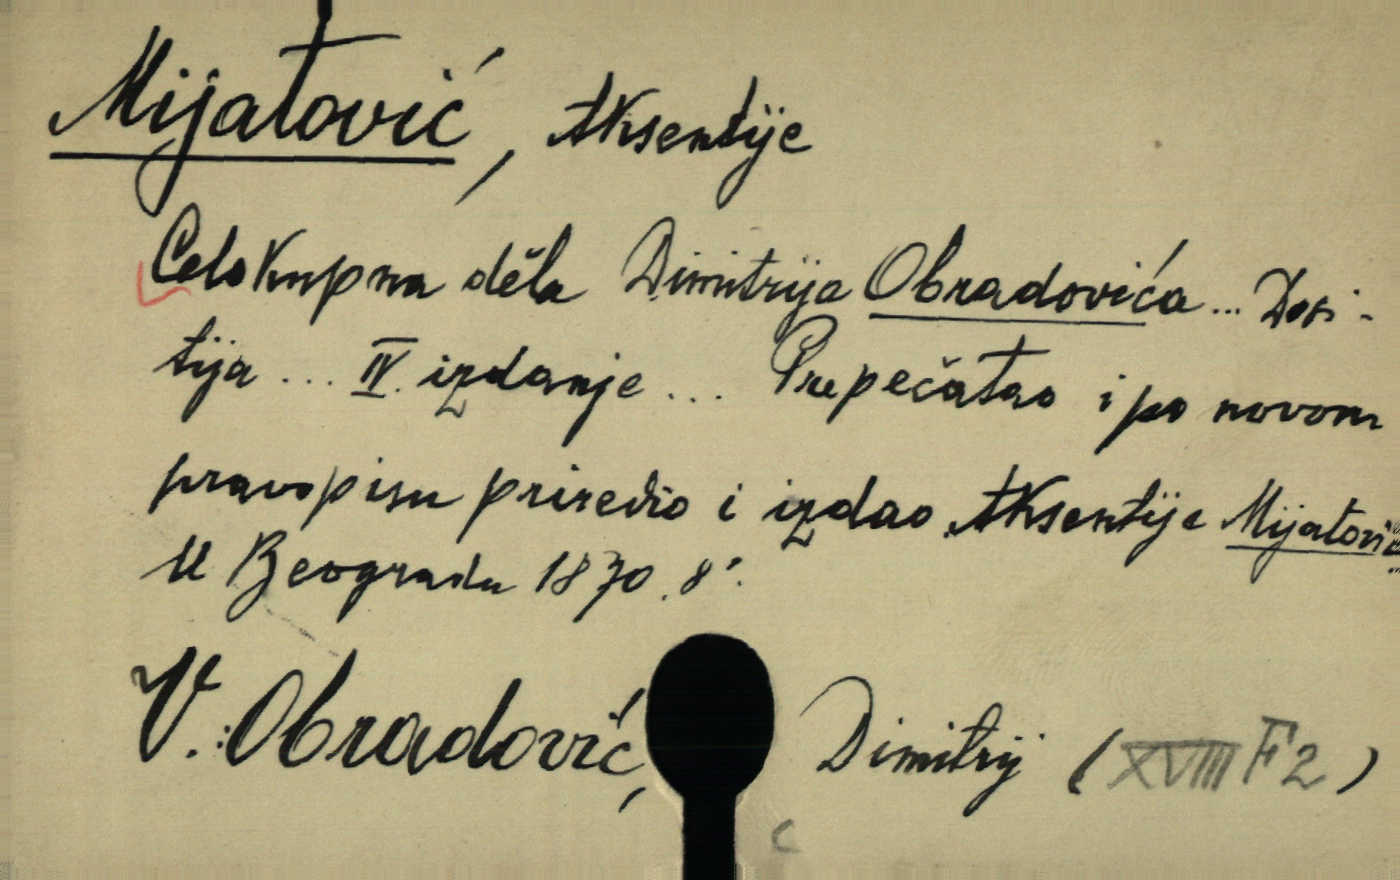 Mijatović, Aksentije
Celokupna děla Dimitrija Obradovića... Dosi-
tija... IV. izdanje... Prepečatao i po novom
pravopisu priredio i izdao Aksentije Mijatović
U Beogradu 1870. 8°.
V.: Obradović, Dimitrij (XVIII F 2)
C